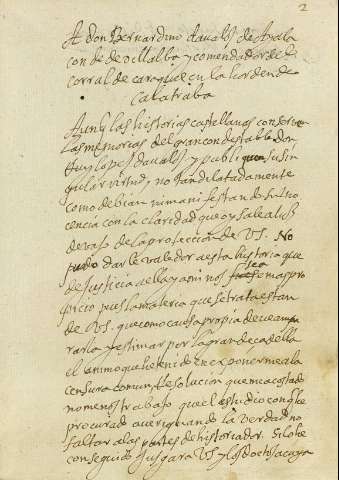 2
A don Bernardino davalos de Ayala
conde de villalba y comendador de
corral de caraquel en la horden de
calatraba
Aunq las historias castellanas conserven
las memorias del gran condestable don
Ruy lopez davalos y publiquen su sin
gular virtud, no tan delatadamente
como debian ni manifestando su ino
cencia con la claridad que oy sale a luz
devajo de la proteccion de V S. No
pudo dar le valedor a esta historia que
de justicia a ella y a mi nos sea mas pro
picio pues la materia que se trata es tan
de V S. que como causa propia deve ampa
rarla y estimar por la grandeca della
el animo que he tenido en exponerme a la
censura comun, Resolucion que me a costado
no menos trabajo que el estudio con q he
procurado averiguando la verdad no
faltar a las partes de historiador. Si lo he
conseguido Juzgara V S y los doctos a cuya